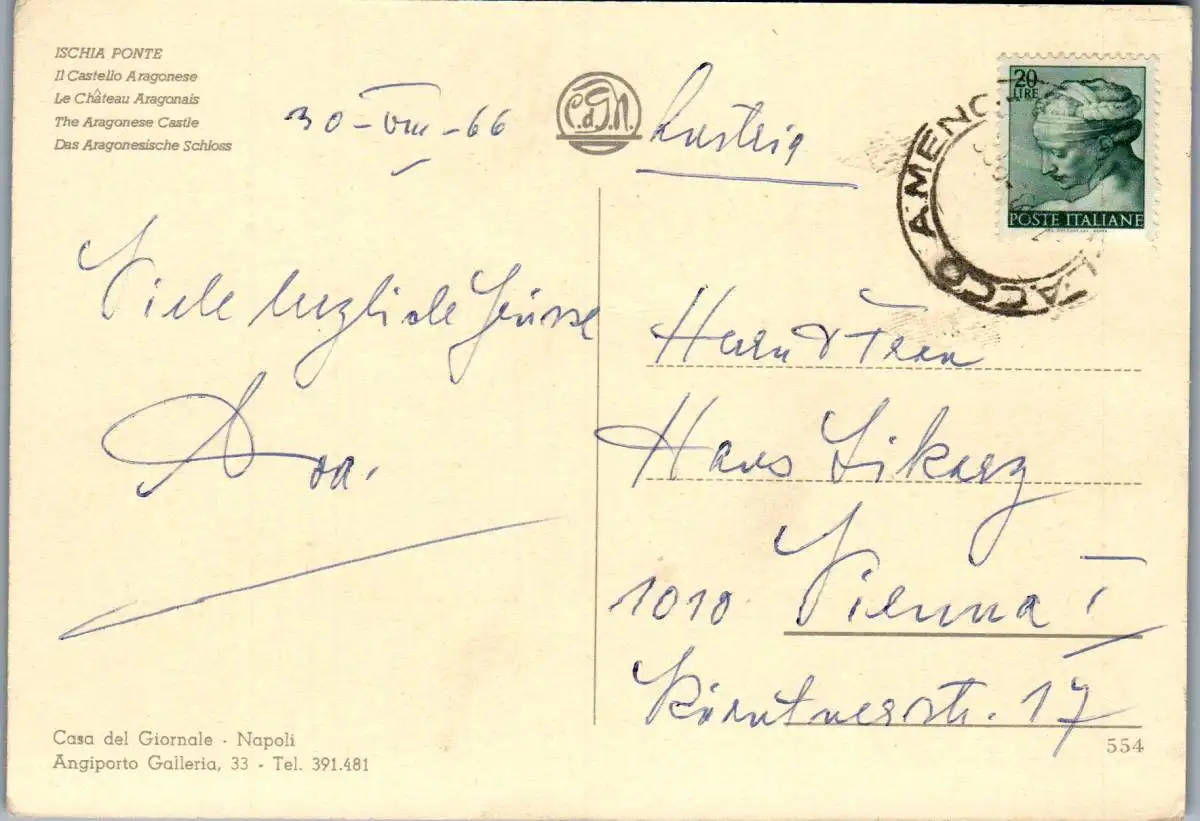 ISCHIA PONTE
Il Castello Aragonese
Le Château Aragonais
The Aragonese Castle
Das Aragonesische Schloss
30-VIII-66
C.d.G.N.
Austria
20
LIRE
POSTE ITALIANE
LACCO AMENO
Viele herzliche Grüsse
Herrn & Frau
Hans
1010 Vienna I
Kärntnerstr. 17
Casa del Giornale - Napoli
Angiporto Galleria, 33 - Tel. 391.481
554